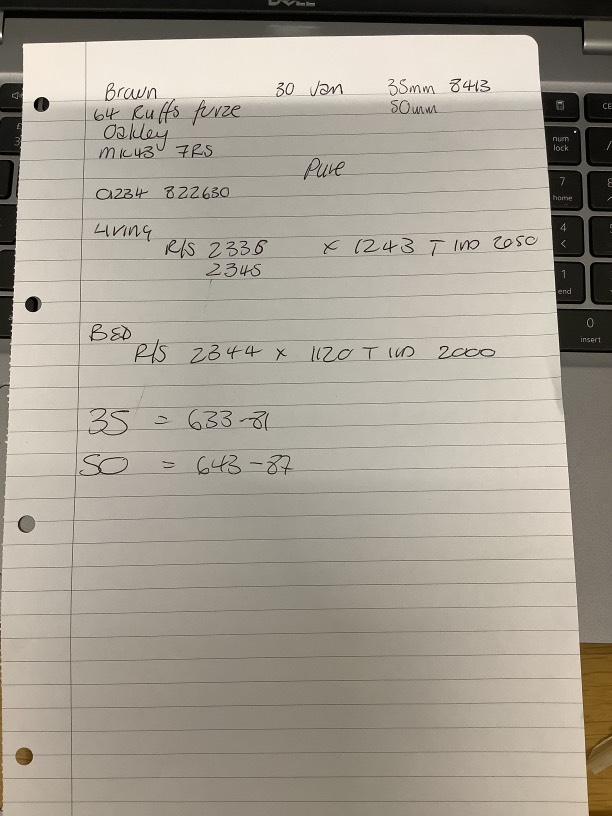 DELL
Brown 30 Jan 35mm 8413
64 Ruffs furze 50mm
Oakley
MK43 7RS
Pure
01234 822630
Living
R/S 2335 x 1243 T 2050
2345
BED
R/S 2344 x 1120 T 2000
35 = 633-81
50 = 643-87
num lock
7 home
4
1 end
0 insert